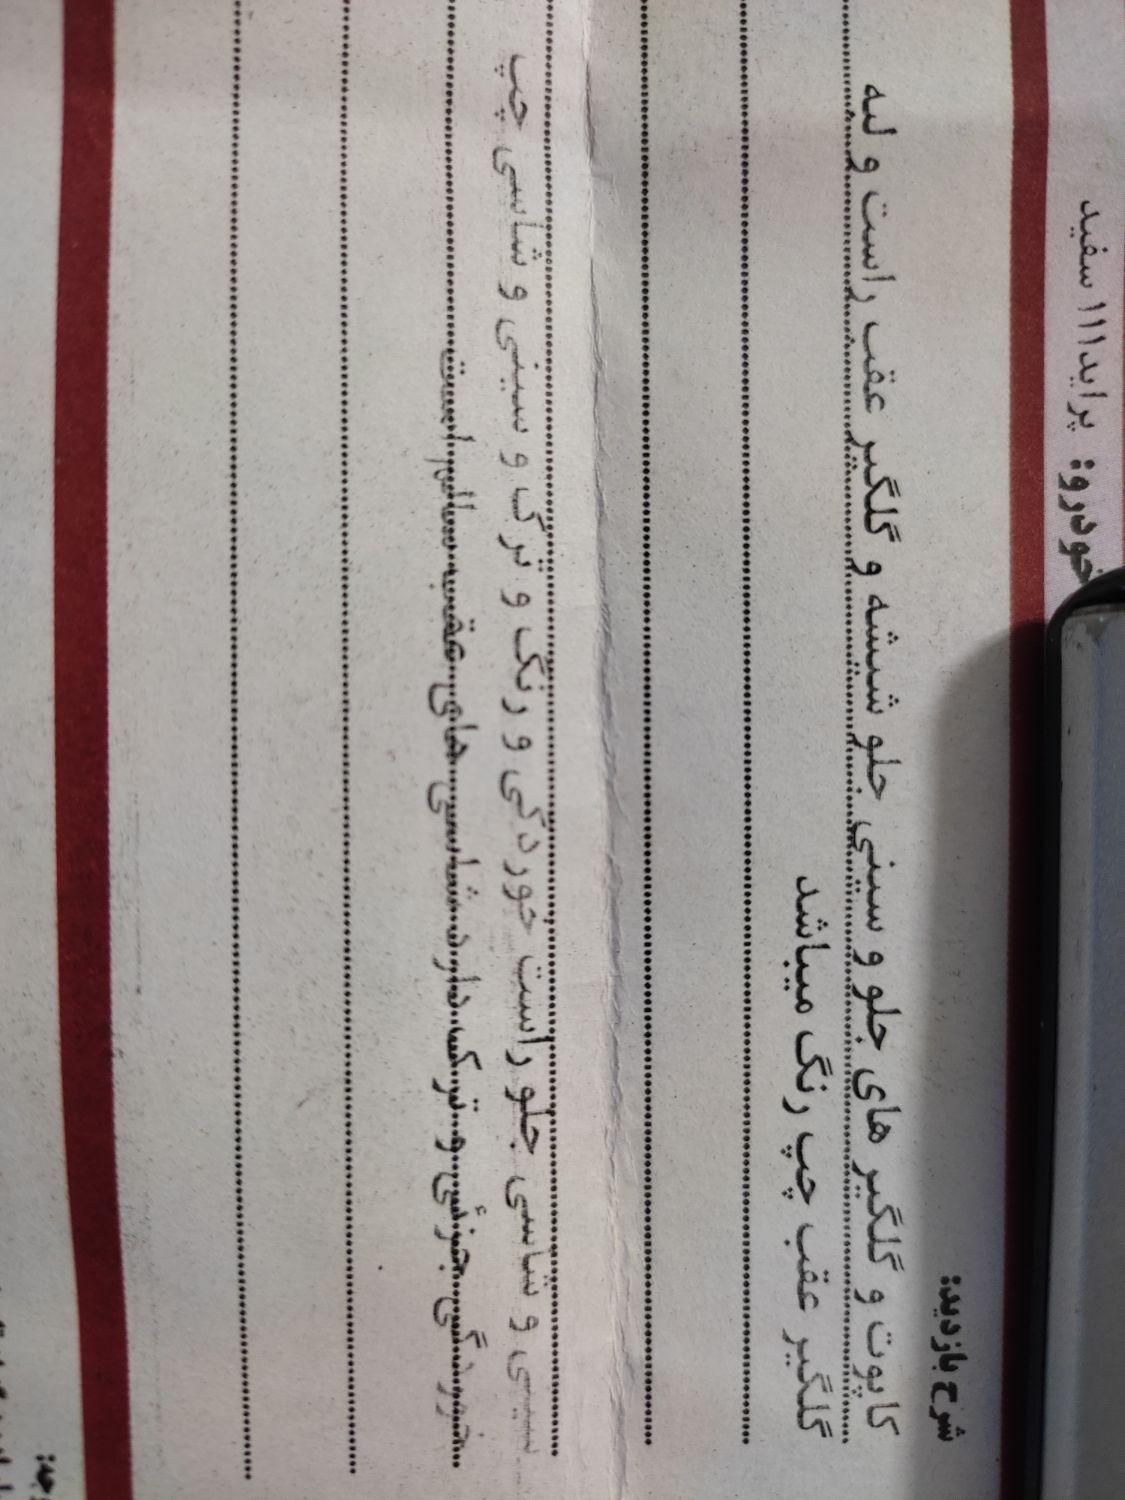 خودرو: پراید۱۱۱ سفید
شرح بازدید:
کاپوت و گلگیر های جلو و سینی جلو شیشه و گلگیر عقب راست و لبه
گلگیر عقب چپ رنگ میباشد
سینی و شاسی جلو راست خوردگی و رنگ و ترک و سینی و شاسی چپ
خوردگی جزئی و ترک دارد شاسی های عقب سالم است